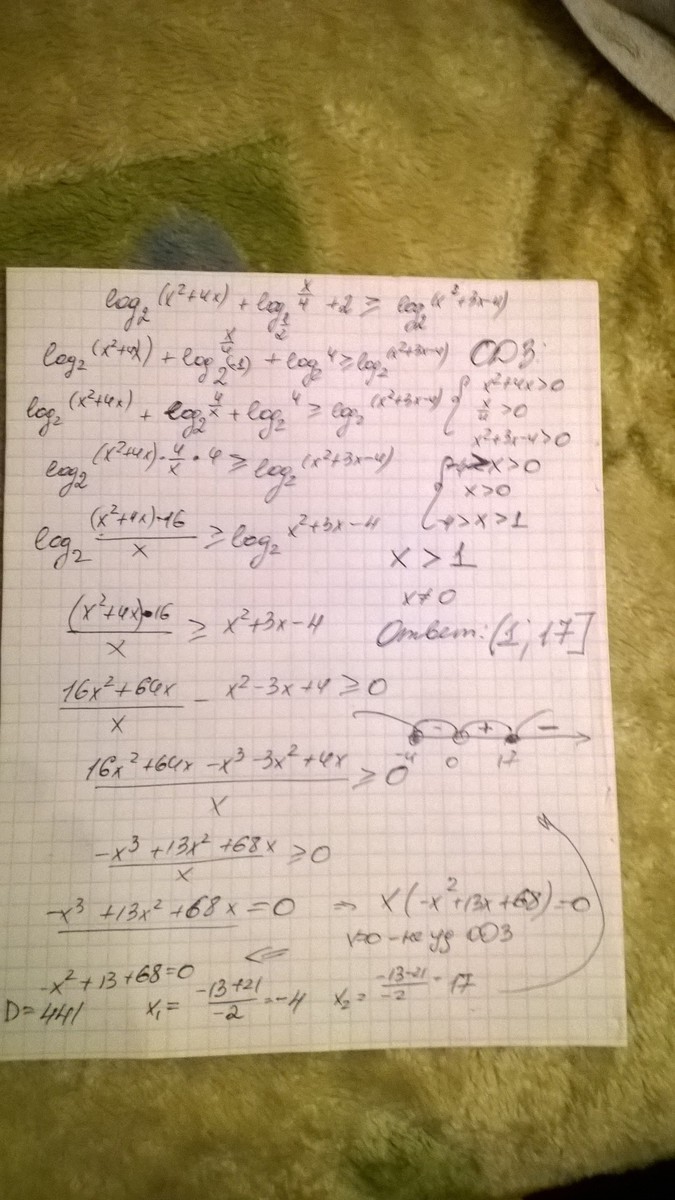 log₂(x²+4x) + log_{1/2} x/4 + 2 ≥ log₂(x²+3x-4)
log₂(x²+4x) + log_{2^(-1)} x/4 + log₂4 ≥ log₂(x²+3x-4)
ОДЗ:
{ x²+4x>0
x/4 >0
x²+3x-4>0
log₂(x²+4x) + log₂ 4/x + log₂4 ≥ log₂(x²+3x-4)
log₂(x²+4x)·4/x·4 ≥ log₂(x²+3x-4)
x>0
x>0
-4>x>1
log₂ (x²+4x)·16/x ≥ log₂ x²+3x-4
x>1
x≠0
(x²+4x)·16/x ≥ x²+3x-4
Ответ: (1; 17]
16x²+64x/x - x²-3x+4 ≥ 0
- + -
-4 0 17
16x²+64x-x³-3x²+4x/x ≥ 0
-x³+13x²+68x/x ≥ 0
-x³+13x²+68x=0 ⇒ x(-x²+13x+68)=0
x=0 - не уд ОДЗ
⇐
-x²+13+68=0
D=441 x₁= -13+21/-2 = -4 x₂= -13-21/-2 = 17